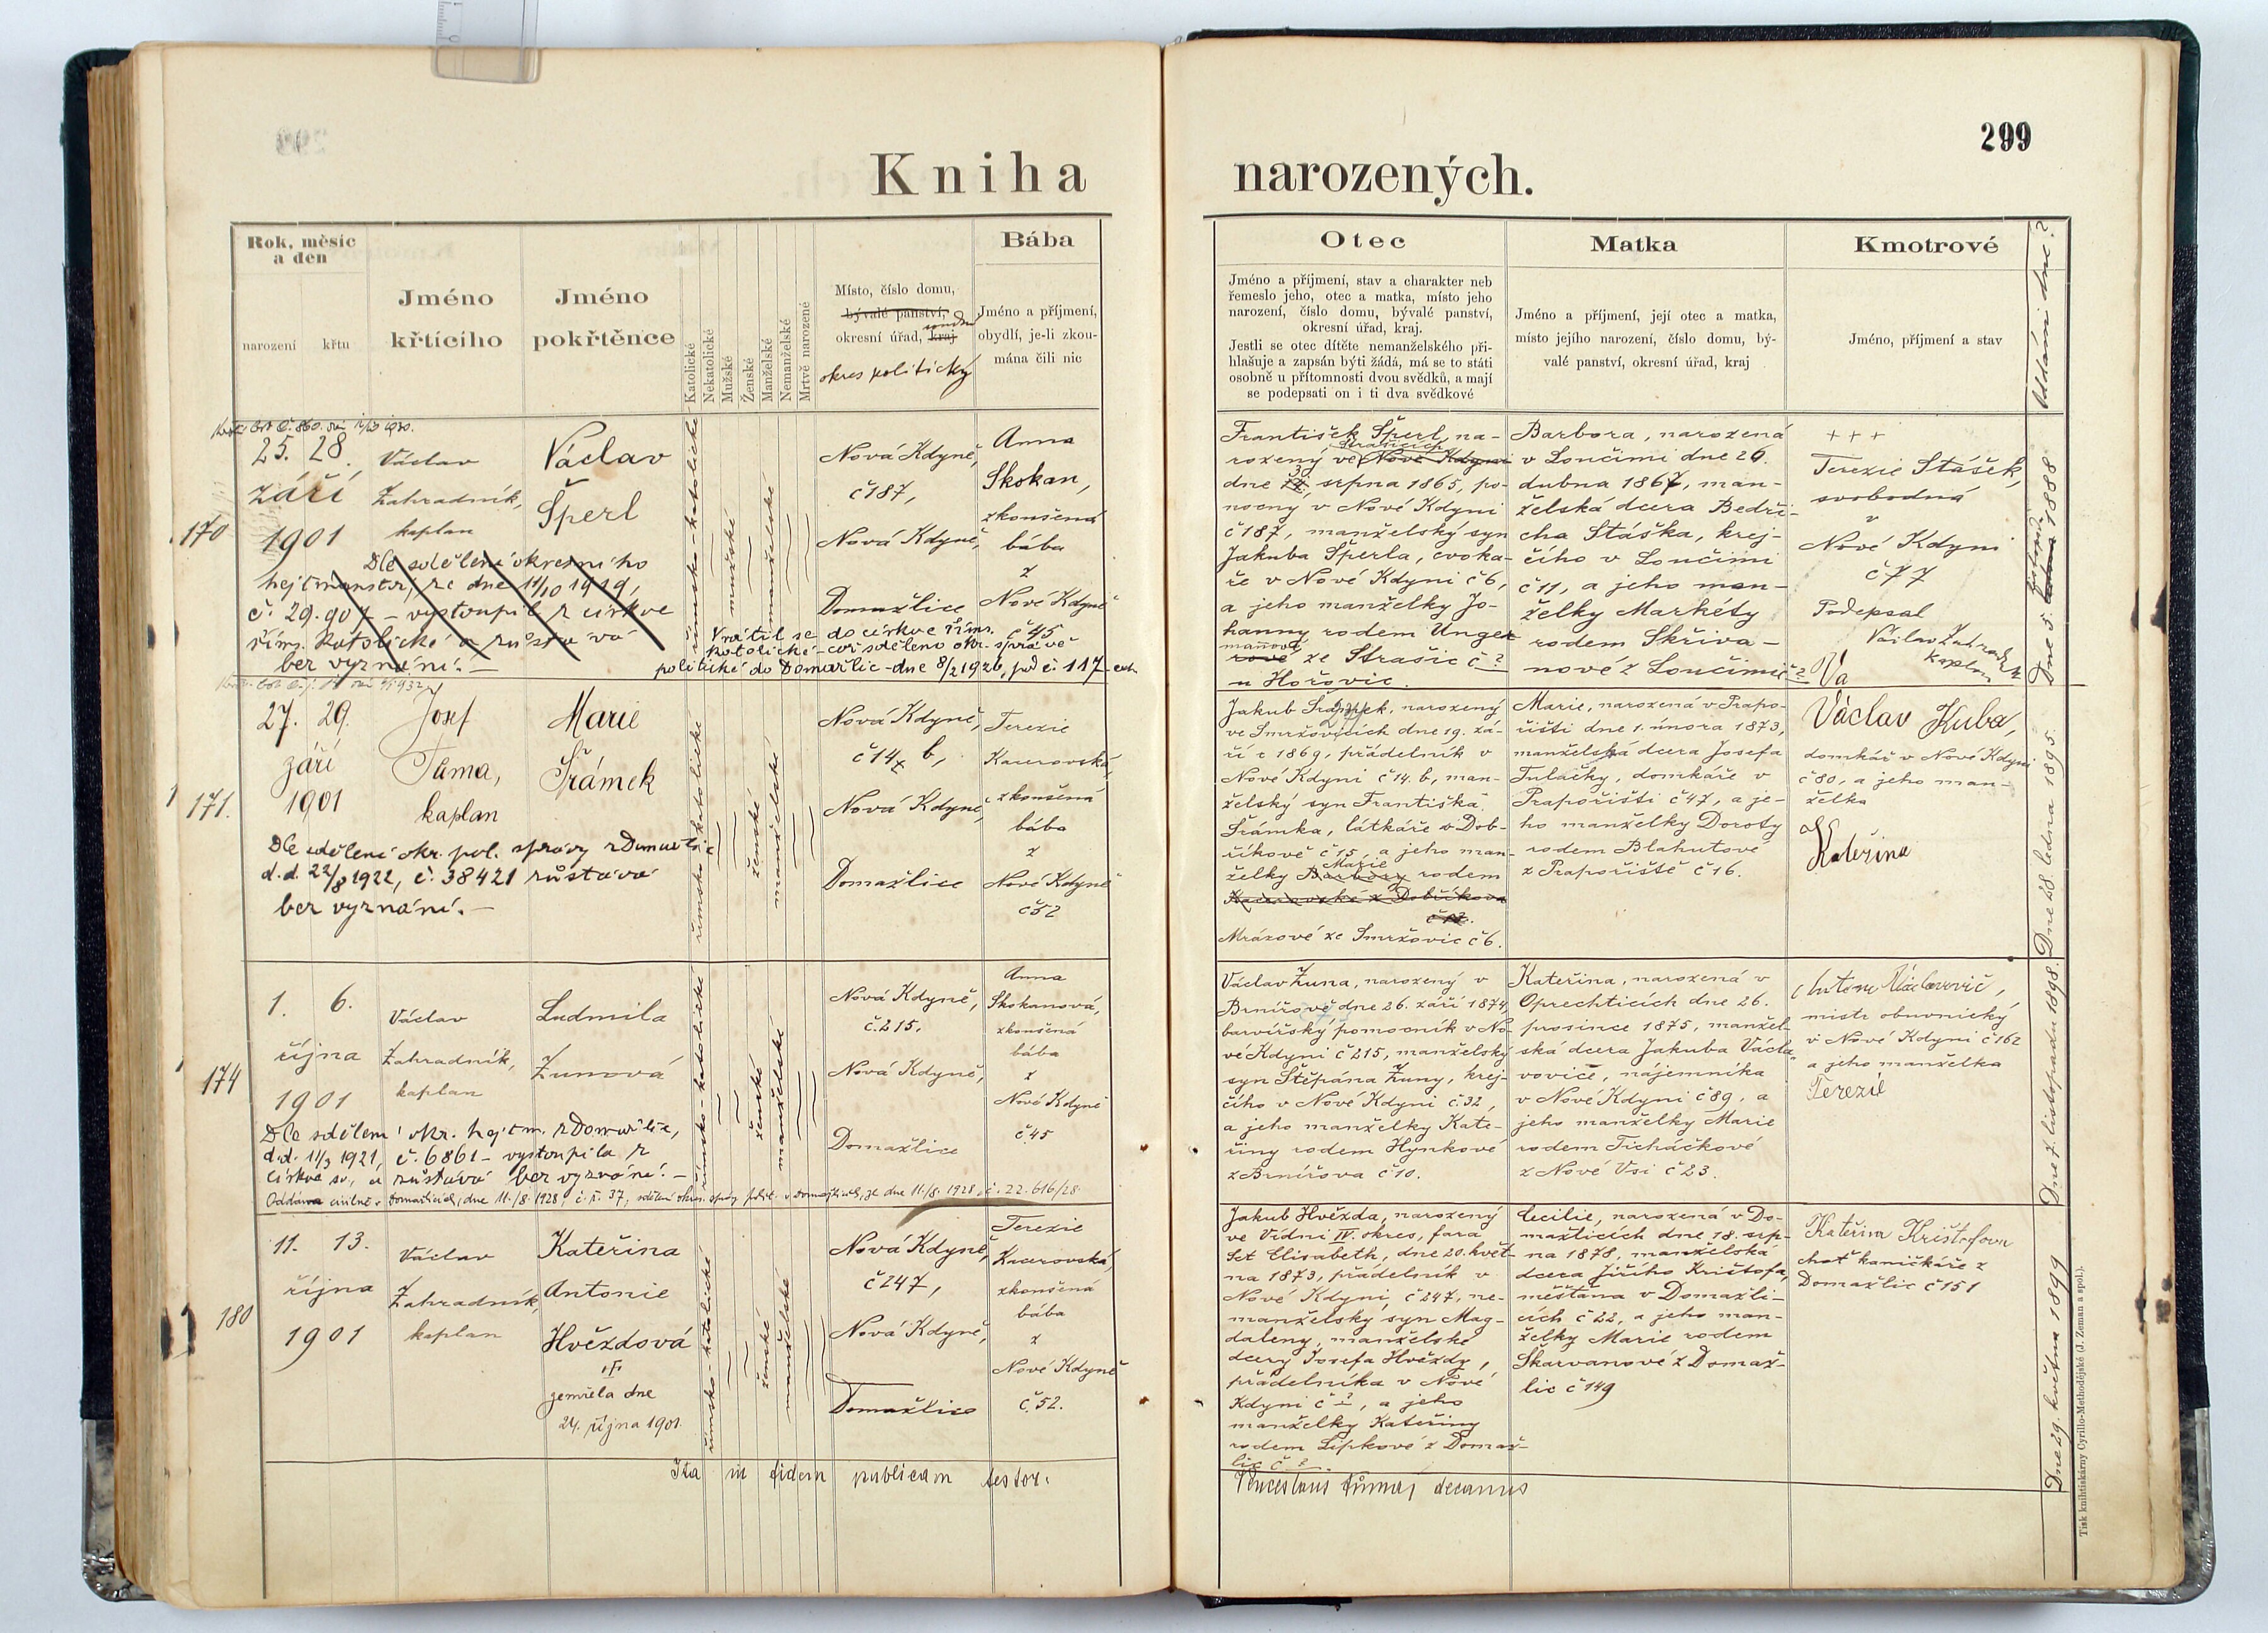 299
Kniha narozených.
Rok, měsíc
a den
narození
křtu
Jméno
křtícího
Jméno
pokřtěnce
Katolické
Nekatolické
Mužské
Ženské
Manželské
Nemanželské
Mrtvě narozené
Místo, číslo domu,
bývalé panství,
okresní úřad, kraj
okres politický
Bába
Jméno a příjmení,
obydlí, je-li zkou-
mána čili nic
Otec
Jméno a příjmení, stav a charakter neb
řemeslo jeho, otec a matka, místo jeho
narození, číslo domu, bývalé panství,
okresní úřad, kraj.
Jestli se otec dítěte nemanželského při-
hlašuje a zapsán býti žádá, má se to státi
osobně u přítomnosti dvou svědků, a mají
se podepsati on i ti dva svědkové
Matka
Jméno a příjmení, její otec a matka,
místo jejího narození, číslo domu, bý-
valé panství, okresní úřad, kraj
Kmotrové
Jméno, příjmení a stav
Oddáni dne?
170
25. 28.
září
1901
Václav
Zahradník,
kaplan
Václav
Šperl
římsko-katolické
mužské
manželské
Nová Kdyně,
č 187,
Nová Kdyně,
Domažlice
Anna
Skokan,
zkoušená
bába
z
Nové Kdyně
č 45
Dle sdělení okresního
hejtmanství ze dne 11/10 1919,
č. 29.907 – vystoupil z církve
řím. katolické a zůstává
bez vyznání. –
Vrátil se do církve řím.
katolické – což sděleno okr. správě
politické do Domažlic – dne 8/2 1926, pod č. 117
František Šperl, na-
rozený ve Nové Kdyni
Strašicích
dne srpna 1865, po-
nocny v Nové Kdyni
č 187, manželský syn
Jakuba Šperla, cvoka-
ře v Nové Kdyni č 6,
a jeho manželky Jo-
hanny rodem Unger
manové
rové ze Strašic č ?
u Hořovic.
Barbora, narozená
v Loučimi dne 26.
dubna 1867, man-
želská dcera Bedři-
cha Stáška, krej-
čího v Loučimi
č 11, a jeho man-
želky Markéty
rodem Skřiva-
nové z Loučimi č ?
+++
Terezie Stášek,
svobodná
v
Nové Kdyni
č 77
Podepsal
Václav Zahradník
kaplan
Dne 5. listopadu 1888
171.
27. 29.
září
1901
Josef
Tůma,
kaplan
Marie
Šrámek
římsko-katolické
ženské
manželské
Nová Kdyně,
č 14 b,
Nová Kdyně,
Domažlice
Terezie
Kacerovská,
zkoušená
bába
z
Nové Kdyně
č 52
Dle sdělení okr. pol. správy z Domažlic
d.d. 22/8 1922, č. 38421 zůstává
bez vyznání. –
Jakub Šrámek, narozený
ve Smržovicích dne 19. zá-
ří r 1869, přádelník v
Nové Kdyni č 14. b, man-
želský syn Františka
Šrámka, látkáře v Dob-
říkově č 15, a jeho man-
Marie
želky Barbory rodem
Kacerovské z Dobříkova
Mrázové ze Smržovic č 6.
Marie, narozená v Prapo-
řišti dne 1. února 1873,
manželská dcera Josefa
Tuláčky, domkáře v
Prapořišti č 47, a je-
ho manželky Doroty
rodem Blahutové
z Prapořiště č 16.
Václav Kuba,
domkář v Nové Kdyni
č 80, a jeho man-
želka
Kateřina
Dne 28. ledna 1895.
174
1. 6.
října
1901
Václav
Zahradník,
kaplan
Ludmila
Žunová
římsko-katolické
ženské
manželské
Nová Kdyně,
č. 215.
Nová Kdyně,
Domažlice
Anna
Skokanová,
zkoušená
bába
z
Nové Kdyně
č 45
Dle sdělení okr. hejtm. z Domažlic,
d.d. 11/3 1921, č. 6861 – vystoupila z
církve sv. a zůstává bez vyznání. –
Oddána civilně v Domažlicích, dne 11./8. 1928, č. ř. 37, sdělení okres. správy polit. v Domažlicích, ze dne 11./8. 1928, č. 22.616/28.
Václav Žuna, narozený v
Brnířově dne 26. září 1874,
barvířský pomocník v No-
vé Kdyni č 215, manželský
syn Štěpána Žuny, krej-
čího v Nové Kdyni č. 32,
a jeho manželky Kate-
řiny rodem Hynkové
z Brnířova č 10.
Kateřina, narozená v
Oprechticích dne 26.
prosince 1875, manžel-
ská dcera Jakuba Václa-
voviče, nájemníka
v Nové Kdyni č 89, a
jeho manželky Marie
rodem Ticháčkové
z Nové Vsi č 23.
Antonín Václavovič,
mistr obuvnický
v Nové Kdyni č 162
a jeho manželka
Terezie
Dne 7. listopadu 1898.
180
11. 13.
října
1901
Václav
Zahradník,
kaplan
Kateřina
Antonie
Hvězdová
zemřela dne
24. října 1901.
římsko-katolické
ženské
manželské
Nová Kdyně,
č 247,
Nová Kdyně,
Domažlice
Terezie
Kacerovská,
zkoušená
bába
z
Nové Kdyně
č. 52.
Jakub Hvězda, narozený
ve Vídni IV. okres, fara
Sct Elisabeth, dne 20. květ-
na 1873, přádelník v
Nové Kdyni č 247, ne-
manželský syn Mag-
daleny, manželské
dcery Josefa Hvězdy,
přádelníka v Nové
Kdyni č ?, a jeho
manželky Kateřiny
rodem Lipkové z Domaž-
lic č ?.
Cecilie, narozená v Do-
mažlicích dne 18. srp-
na 1878, manželská
dcera Jiřího Krištofa,
měšťana v Domažli-
cích č 22, a jeho man-
želky Marie rodem
Skarvanové z Domaž-
lic č 149
Kateřina Krištofova
choť kaničkáře z
Domažlic č 151
Dne 29. května 1899
Ita in fidem publicam testor:
decanus
Tisk knihtiskárny Cyrillo-Methodějské (J. Zeman a spol.).